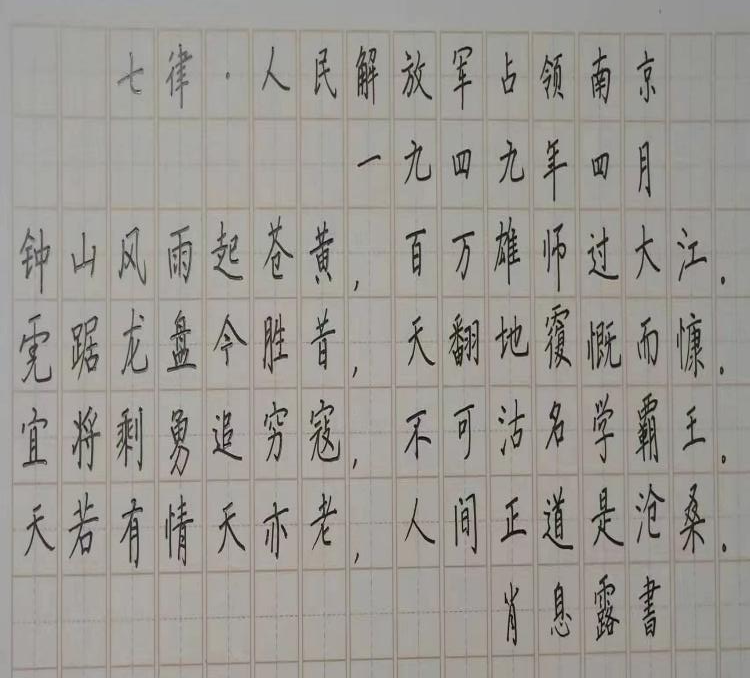 七律·人民解放军占领南京
一九四九年四月
钟山风雨起苍黄,百万雄师过大江.
虎踞龙盘今胜昔,天翻地覆慨而慷.
宜将剩勇追穷寇,不可沽名学霸王.
天若有情天亦老,人间正道是沧桑.
肖息露書